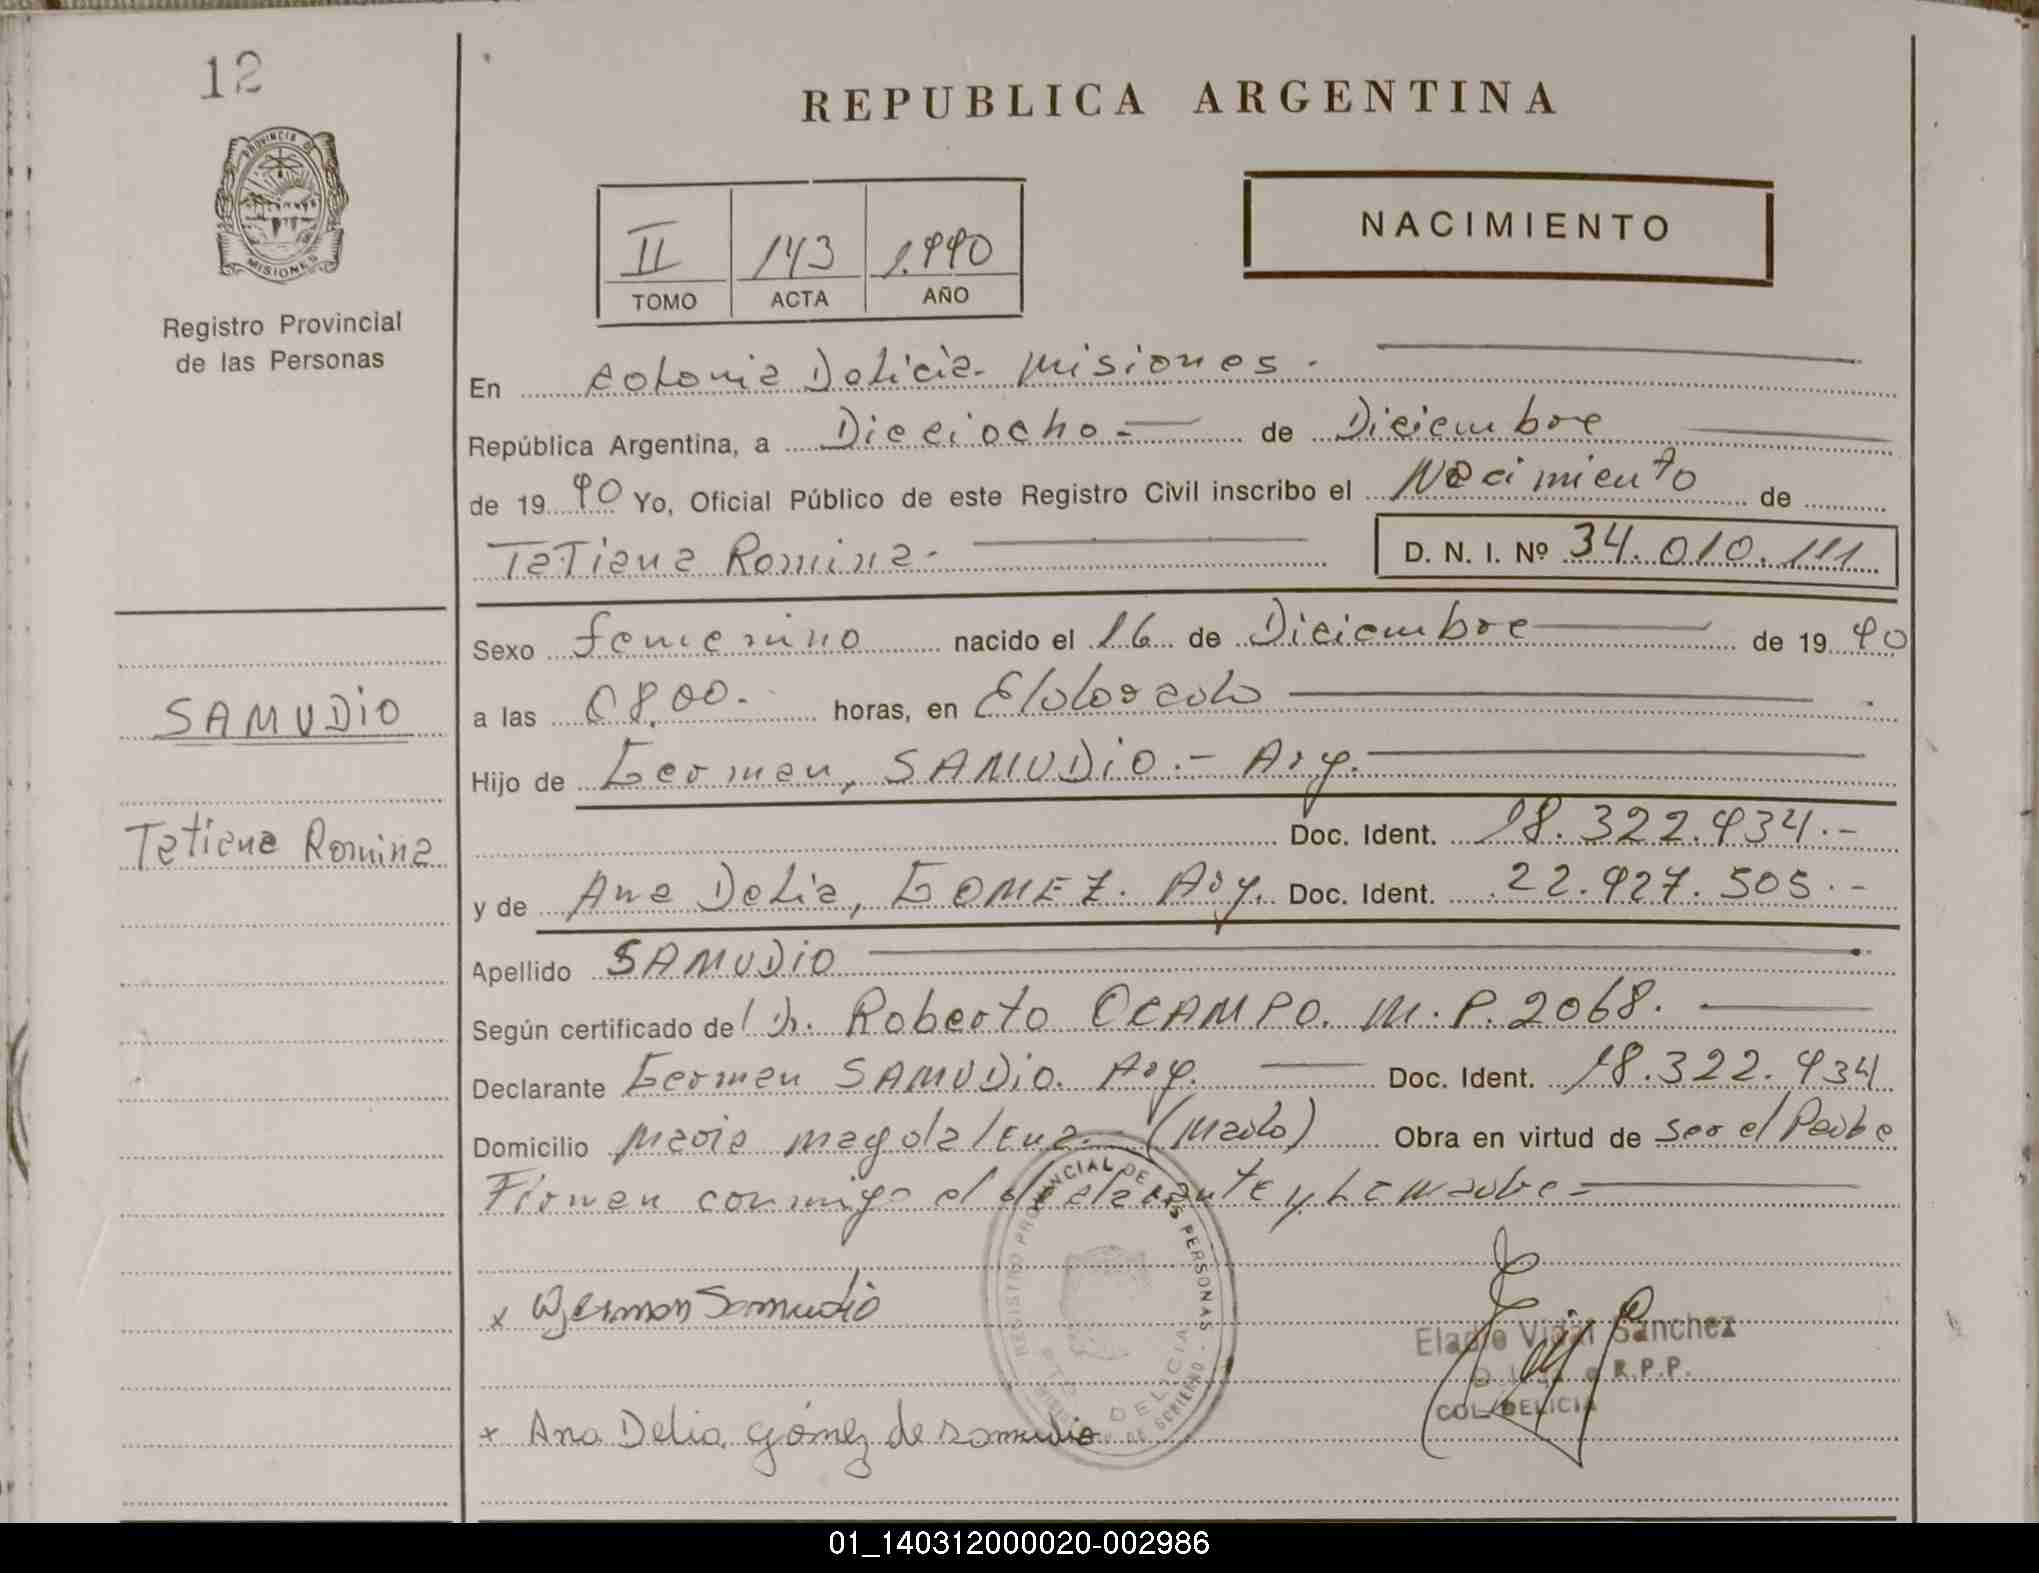 12
REPUBLICA ARGENTINA
PROVINCIA DE
MISIONES
Registro Provincial
de las Personas
II 143 1.990
TOMO ACTA AÑO
NACIMIENTO
En Colonia Delicia - Misiones.
República Argentina, a Dieciocho - de Diciembre
de 19 90 Yo, Oficial Público de este Registro Civil inscribo el Nacimiento de
Tatiana Romina - D. N. I. Nº 34.010.111
Sexo femenino nacido el 16 de Diciembre de 19 90
a las 08,00 - horas, en Eldorado
SAMUDIO
Hijo de German, SAMUDIO. - Arg.
Tatiana Romina
Doc. Ident. 18.322.934. -
y de Ana Delia, GOMEZ. Arg. Doc. Ident. 22.927.505. -
Apellido SAMUDIO
Según certificado del Dr. Roberto OCAMPO. M.P. 2068.
Declarante German SAMUDIO. Arg. Doc. Ident. 18.322.934
Domicilio Maria Magdalena - (Mado) Obra en virtud de ser el Padre
Firman conmigo el declarante y la madre -
REGISTRO PROVINCIAL DE LAS PERSONAS
DELICIA
x German Samudio
Eladio Vidal Sanchez
R.P.P.
COL. DELICIA
x Ana Delia gómez de samudio
01_140312000020-002986